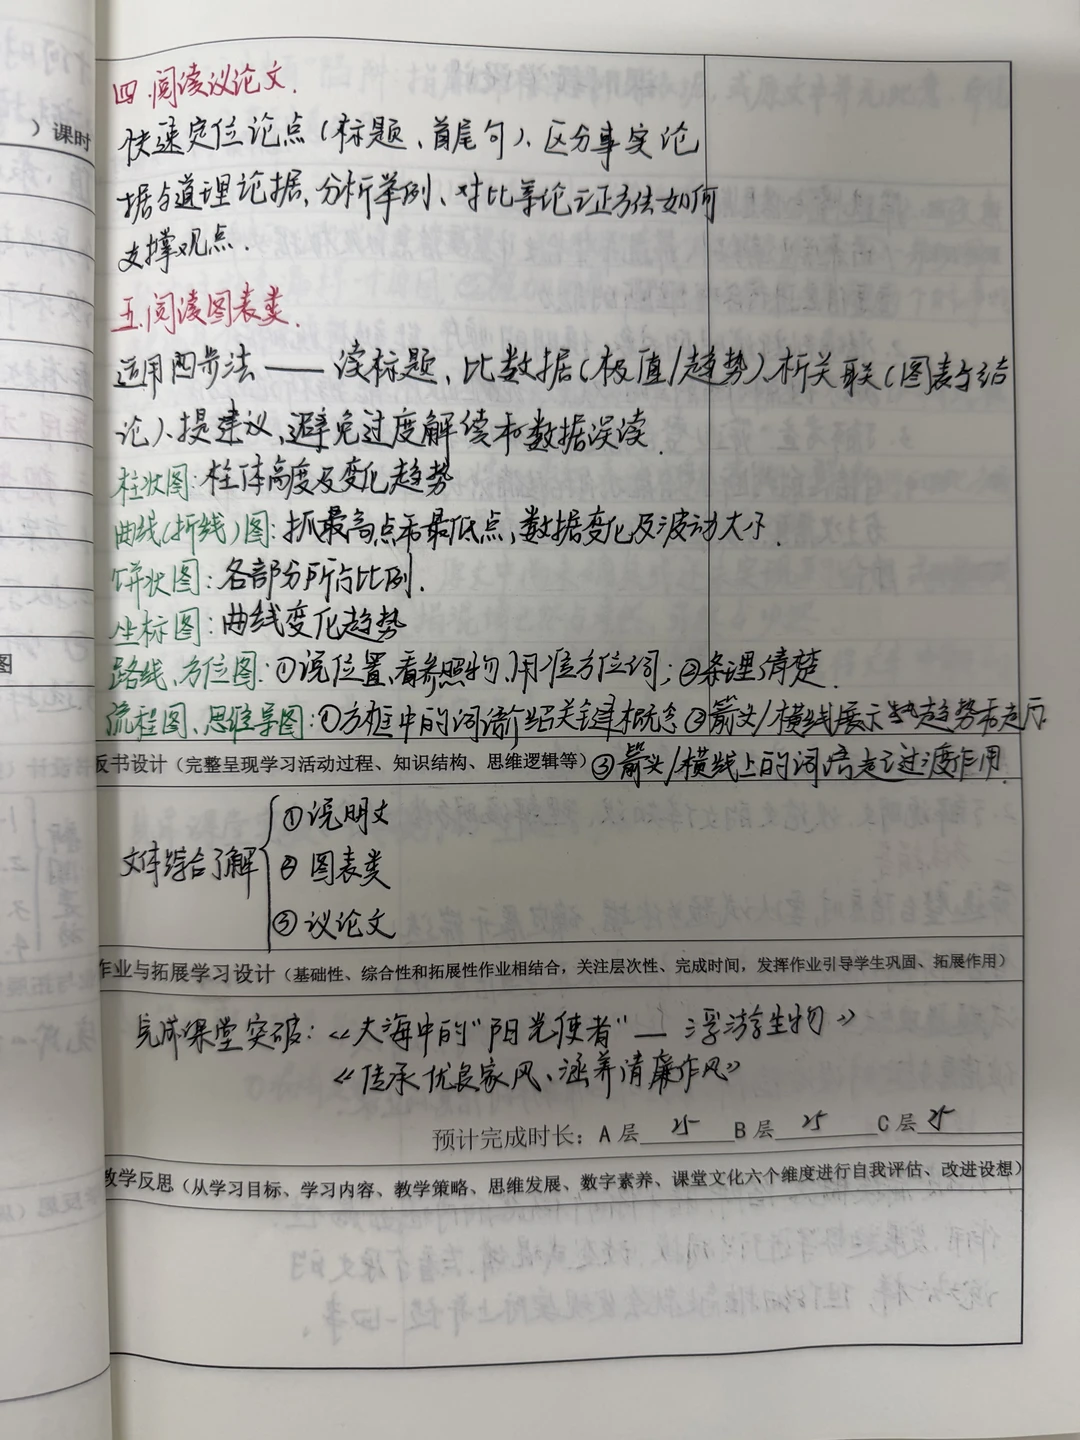 四.阅读议论文.
快速定位论点(标题、首尾句)、区分事实论
据与道理论据,分析举例、对比等论证方法如何
支撑观点.
五.阅读图表类.
运用四步法——读标题、比数据(极值/趋势)、析关联(图表与结
论)、提建议,避免过度解读和数据误读.
柱状图:柱体高度及变化趋势
曲线(折线)图:抓最高点和最低点,数据变化及波动大小.
饼状图:各部分所占比例.
坐标图:曲线变化趋势
路线、方位图:①说位置,看参照物,用准方位词;②条理清楚.
流程图、思维导图:①方框中的词语介绍关键概念②箭头/横线展示趋势和走向
板书设计(完整呈现学习活动过程、知识结构、思维逻辑等)③箭头/横线上的词语起过渡作用.
文体综合了解
①说明文
②图表类
③议论文
作业与拓展学习设计(基础性、综合性和拓展性作业相结合,关注层次性、完成时间,发挥作业引导学生巩固、拓展作用)
完成课堂突破:《大海中的"阳光使者"—浮游生物》
《传承优良家风、涵养清廉作风》
预计完成时长:A层 25 B层 25 C层 25
教学反思(从学习目标、学习内容、教学策略、思维发展、数字素养、课堂文化六个维度进行自我评估、改进设想)
)课时
图